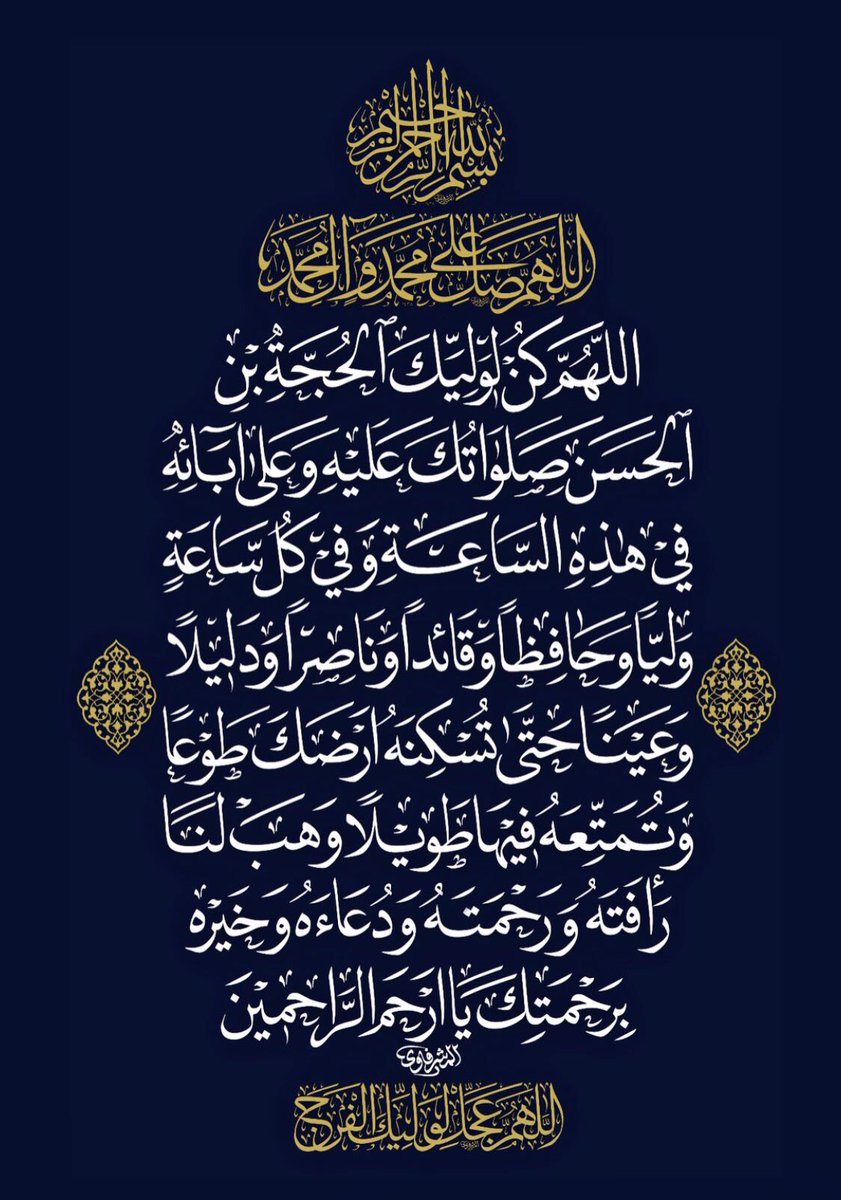 بِسْمِ اللهِ الرَّحْمٰنِ الرَّحِيْمِ
اللّٰهُمَّ صَلِّ عَلٰى مُحَمَّدٍ وَآلِ مُحَمَّدٍ
اللهُمَّ كُنْ لِوَلِيِّكَ ٱلْحُجَّةِ بْنِ
ٱلْحَسَنِ صَلَوَاتُكَ عَلَيْهِ وَعَلٰى آبَائِهِ
فِي هٰذِهِ السَّاعَةِ وَفِيْ كُلِّ سَّاعَةٍ
وَلِيًّا وَحَافِظاً وَقَائِداً وَنَاصِراً وَدَلِيْلًا
وَعَيْنًا حَتّٰى تُسْكِنَهُ أَرْضَكَ طَوْعًا
وَتُمَتِّعَهُ فِيْهَا طَوِيْلًا وَهَبْ لَنَا
رَأْفَتَهُ وَرَحْمَتَهُ وَدُعَاءَهُ وَخَيْرَه
بِرَحْمَتِكَ يَا ارْحَمَ الرَّاحِمِيْنَ
المشرفاوي
اللّٰهُمَّ عَجِّلْ لِوَلِيِّكَ الْفَرَجَ